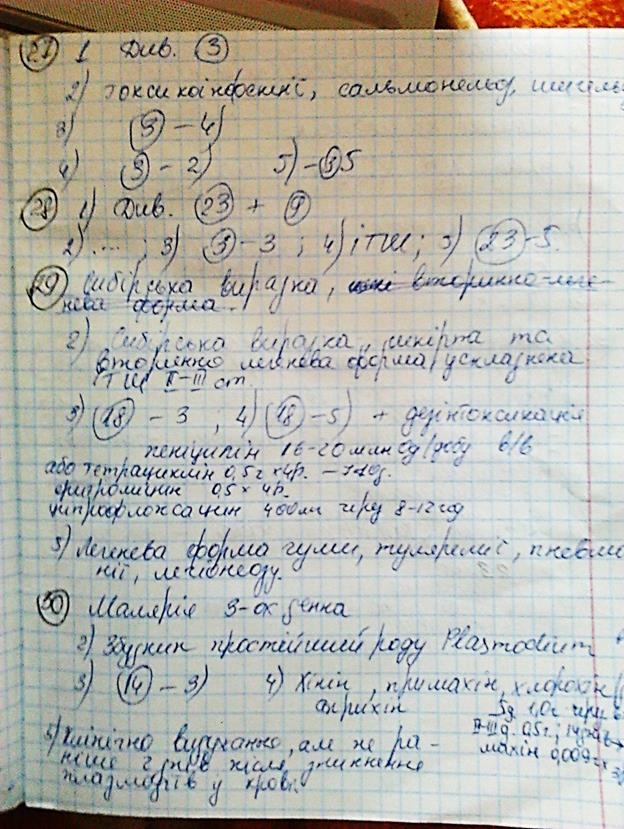 27 1 Див. 3
2) токсикоінфекції, сальмонельоз,
3) 3 - 4)
4) 3 - 2) 5) - 3 5
28 1) Див. 23 + 9
2) .... ; 3) 3 - 3 ; 4) ІТШ ; 5) 23 - 5.
29 Сибірська виразка, вторинно-леге-
нева форма.
2) Сибірська виразка, шкірна та
вторинно легенева форма, ускладнена
ІТШ II-III ст.
3) 18 - 3 ; 4) 18 - 5) + дезінтоксикація
пеніцилін 16-20 млн Од/добу в/в
або тетрациклін 0,5г х 4р.
еритроміцин 0,5 х 4р.
ципрофлоксацин 400мл через 8-12 год
5) Легенева форма чуми, туляремії, пневмо
нії, легіонельозу.
30 Малярія 3-ох денна
2) Збудник простіший роду Plasmodium
3) 14 - 3) 4) Хінін, примахін, хлорохін
акрихін
1,0г через
II-III д. 0,5г ;
махін 0,009
5) Клінічно видужання, але не ра-
ніше після зникнення
плазмодіїв у крові